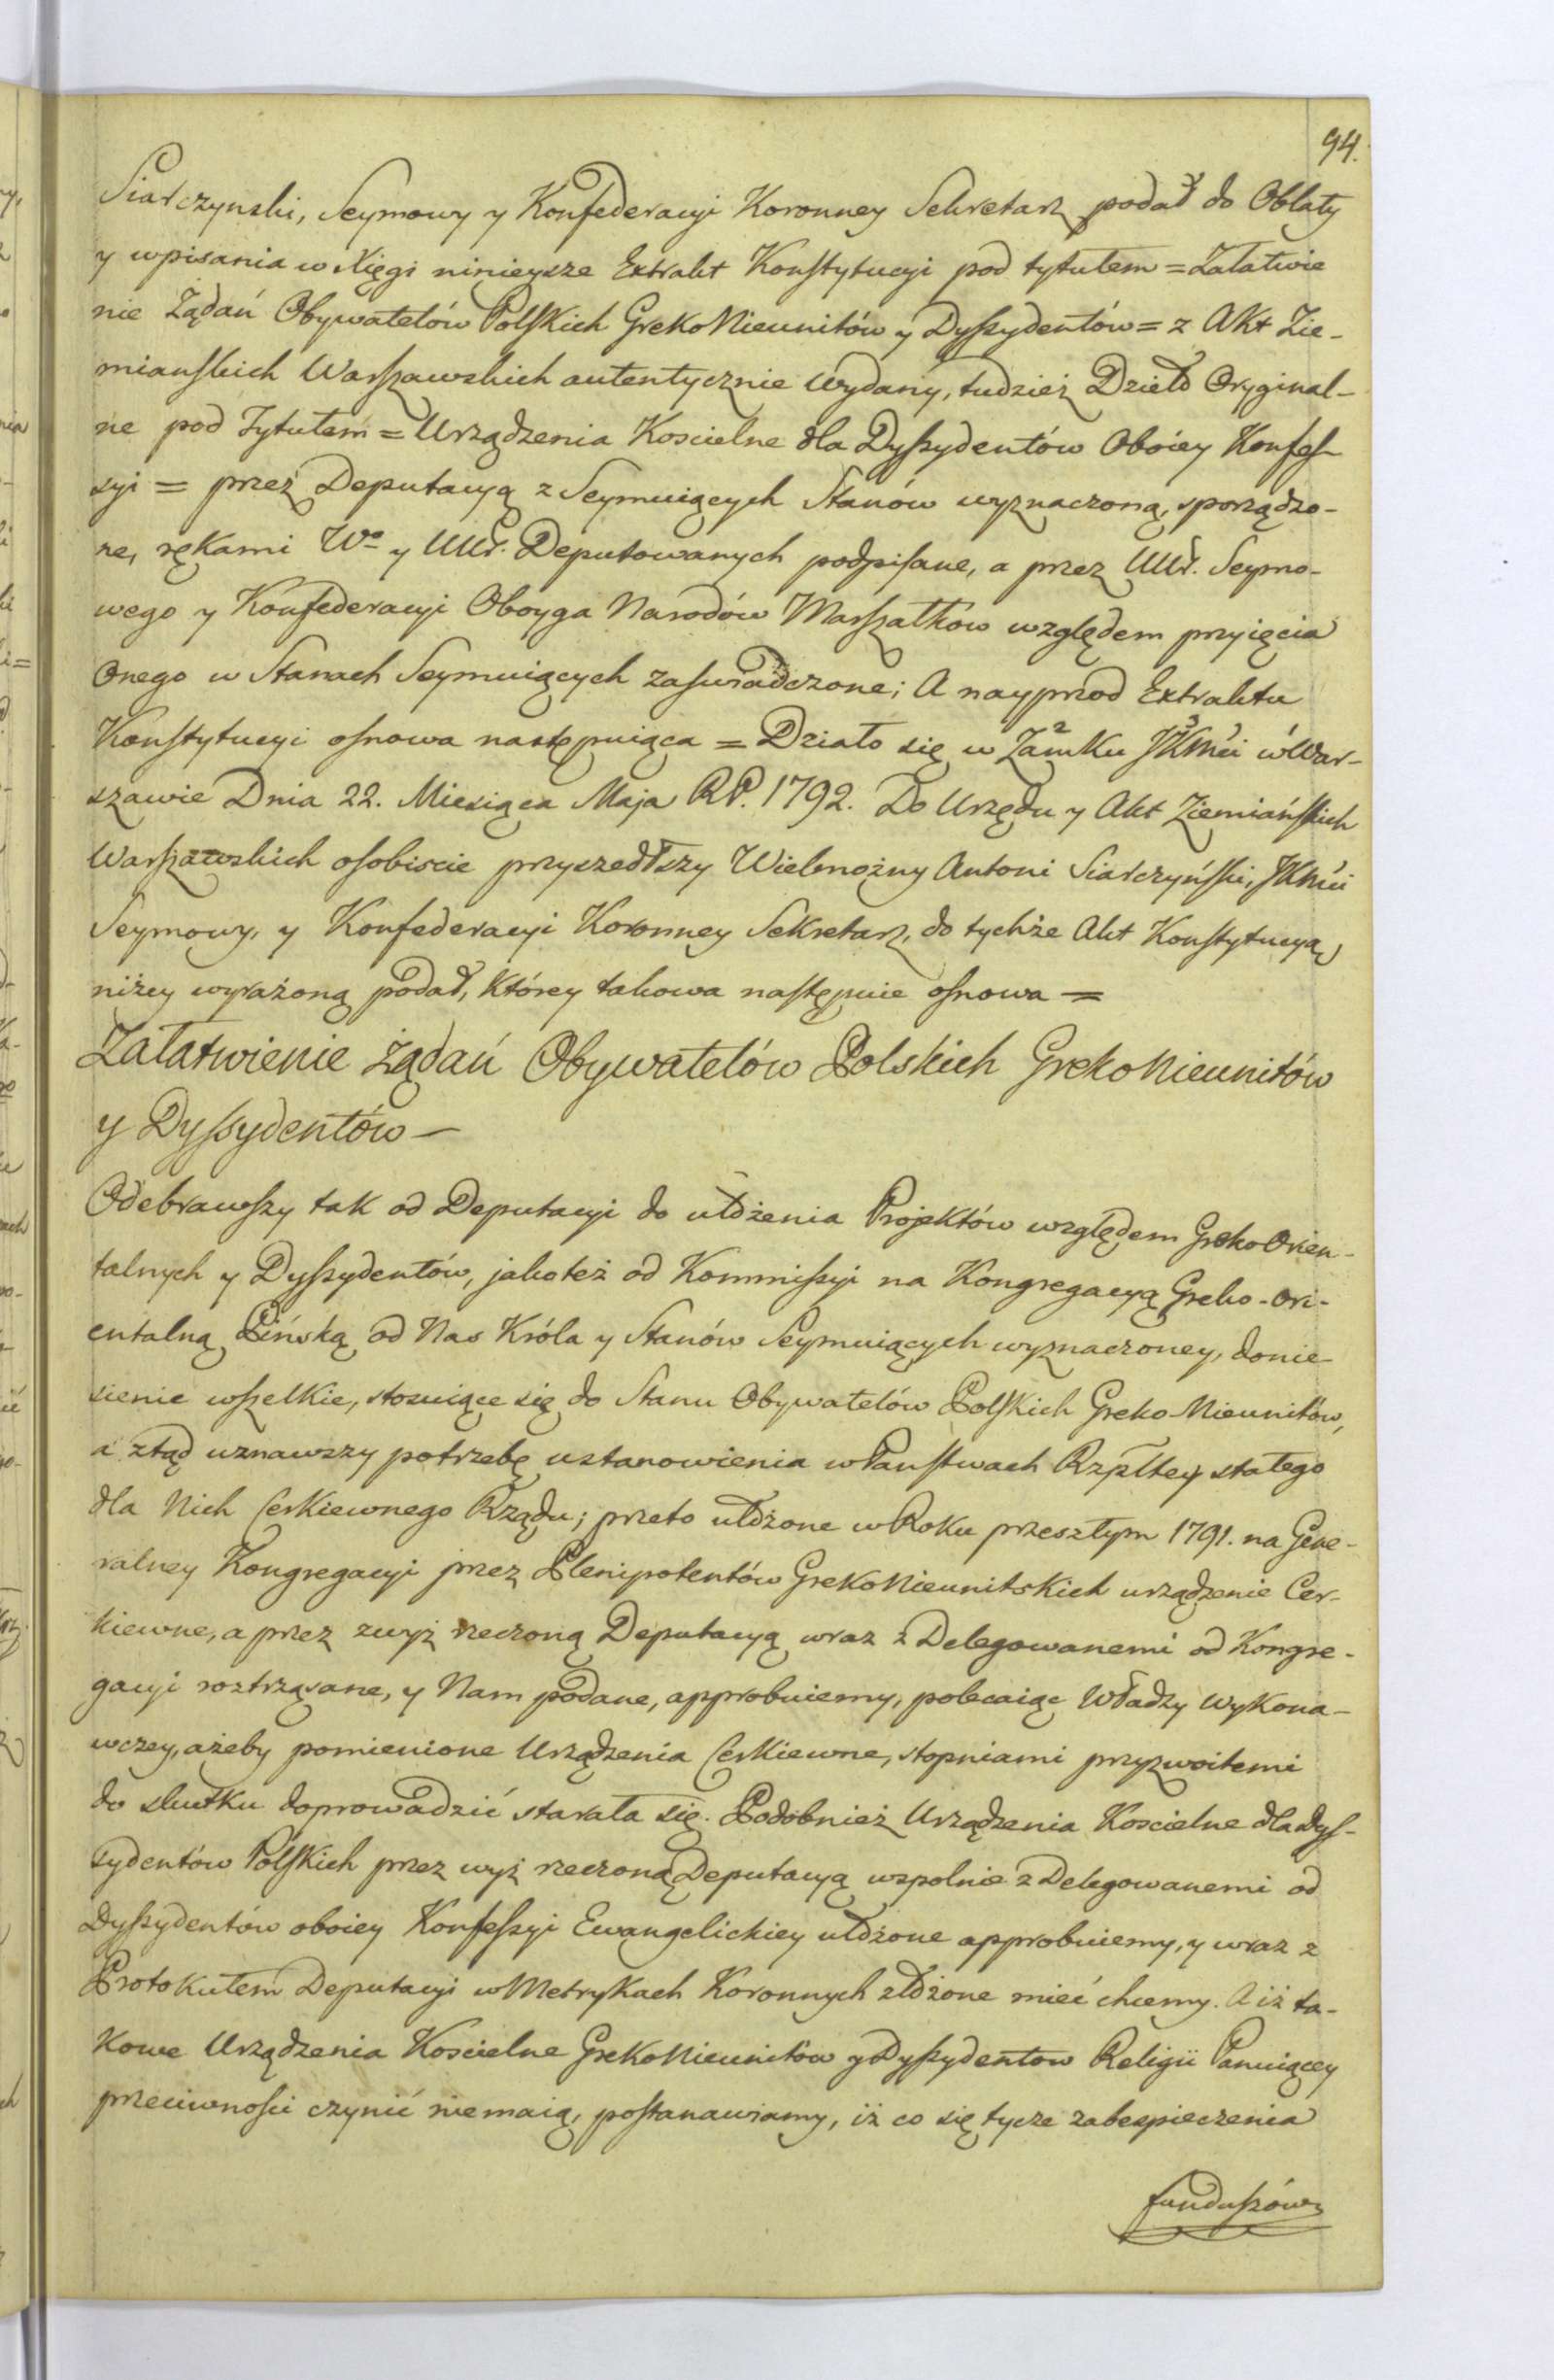 94.
Siarczynski, Seymowy y Konfederacyi Koronney Sekretarz podał do Oblaty
y wpisania w Xięgi ninieysze Extrakt Konstytucyi pod tytułem = Załatwie
nie Żądań Obywatelów Polskich GrekoNieunitów y Dyssydentów = z Akt Zie-
mianskich Warszawskich autentycznie wydany, tudzież Dzieło Oryginal-
ne pod Tytułem = Urządzenia Koscielne dla Dyssydentów Oboiey Konfes-
syi = przez Deputacyą z Seymuiących Stanów wyznaczoną, sporządzo-
ne, rękami Wo y UUr. Deputowanych podpisane, a przez UUr. Seymo-
wego y Konfederacyi Oboyga Narodów Marszałkow względem przyięcia
Onego w Stanach Seymuiących zaswiadczone; A nayprzod Extraktu
Konstytucyi osnowa następuiąca = Działo się w Zamku JKMci w War-
szawie Dnia 22. Miesiąca Maja RP. 1792. Do Urzędu y Akt Ziemiańskich
Warszawskich osobiscie przyszedłszy Wielmożny Antoni Siarczyński, JKMci
Seymowy, y Konfederacyi Koronney Sekretarz, do tychże Akt Konstytucyą,
niżey wyrażoną podał, którey takowa następuie osnowa =
Załatwienie żądań Obywatelów Polskich GrekoNieunitów
y Dyssydentów —
Odebrawszy tak od Deputacyi do ułożenia Projektów względem GrekoOrien-
talnych y Dyssydentów, jakoteż od Kommissyi na Kongregacyą Greko-Ori-
entalną Pińską od Nas Króla y Stanów Seymuiących wyznaczoney, donie-
sienie wszelkie, stosuiące się do Stanu Obywatelów Polskich Greko-Nieunitów,
a ztąd uznawszy potrzebę ustanowienia w Państwach Rzpltey stałego
dla Nich Cerkiewnego Rządu; przeto ułożone w Roku przeszłym 1791. na Gene-
ralney Kongregacyi przez Plenipotentów GrekoNieunitskich urządzenie Cer-
kiewne, a przez zwyż rzeczoną Deputacyą wraz z Delegowanemi od Kongre-
gacyi roztrząsane, y Nam podane, approbuiemy, polecaiąc Władzy Wykona-
wczey, ażeby pomienione Urządzenia Cerkiewne, stopniami przyzwoitemi
do skutku doprowadzić starała się. Podobnież Urządzenia Koscielne dla Dys-
sydentów Polskich przez wyż rzeczoną Deputacyą wspolnie z Delegowanemi od
Dyssydentów oboiey Konfessyi Ewangelickiey ułożone approbuiemy, y wraz z
Protokułem Deputacyi w Metrykach Koronnych złożone mieć chcemy. A iż ta-
kowe Urządzenia Koscielne GrekoNieunitów y Dyssydentow Religii Panuiącey
przeciwności czynić niemaią, postanawiamy, iż co się tycze zabespieczenia
funduszów